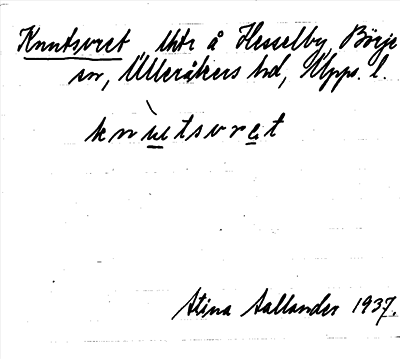 Knutsvret, Uktr å Hesselby, Börje
sn, Ulleråkers hd, Upps. l.
knu̲tsvre̲t
Stina Sallander 1937.